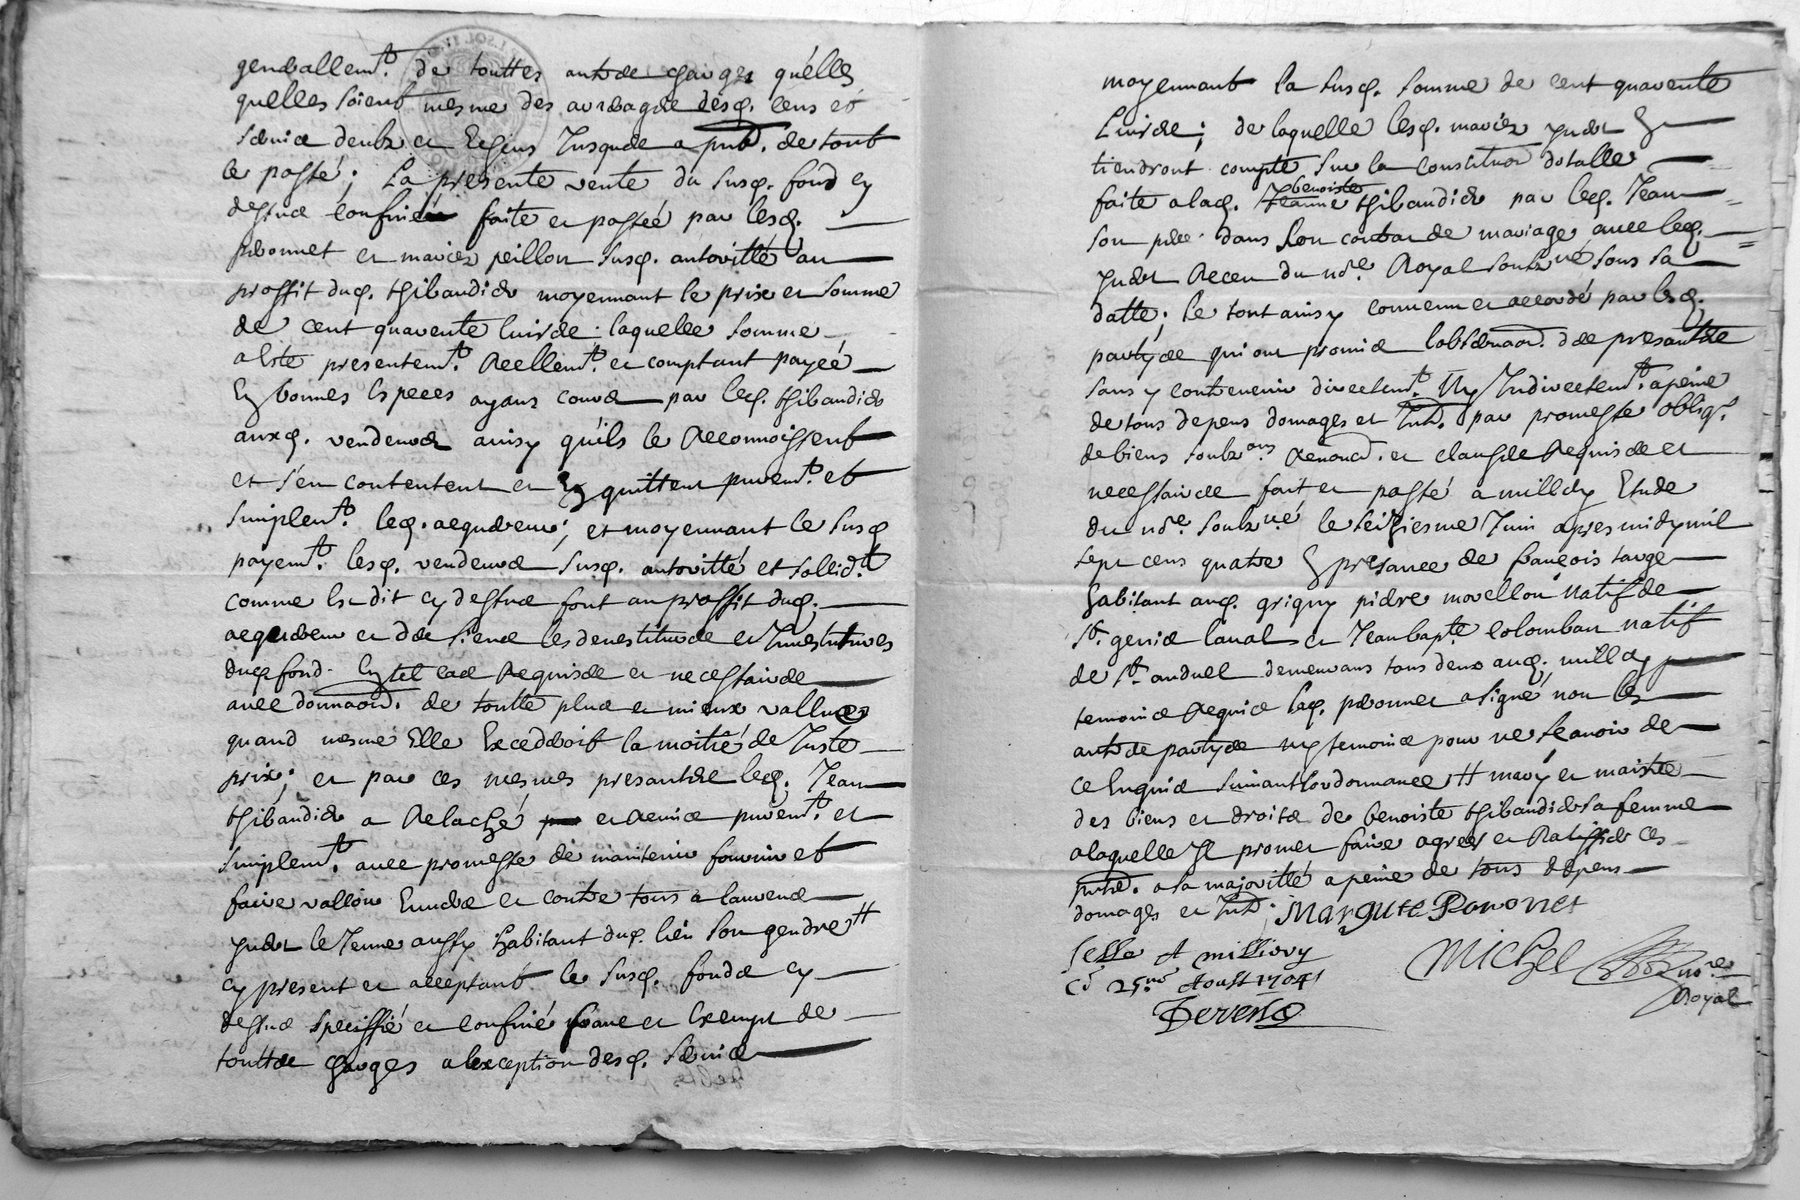 generallem.t de touttes autres charges qu'elles
quelles soient mesme des arrérages desq. cens et
servis deubz et escheus jusques a pnt. de tout
le passé; La presente vente du susq. fond cy
dessus confiné faite et passéé par lesq.
peronnet et mariez peillon susq. authorittés au
proffit duq. thibaudier moyennant le prix et somme
de cent quarente livres laquelle somme
a esté presentem.t Reellem.t et comptant payéé
En bonnes especes ayans cours par leq. thibaudier
auxq. vendeurs ainsy qu'ils le Reconnoissent
et s'en contentent et En quittent purem.t et
simplem.t leq. aequereur; et moyennant le susq
payem.t lesq. vendeurs susq. authorittés et sollid.t
comme Est dit cy dessus font au proffit duq.
aequereur et des siens les devestitures et Investitures
duq fond En tel cas Requises et necessaires
avec donnaon. de toutte plus et mieux vallues
quand mesme Elle Excedderoit la moitié de Juste
prix; et par ces mesmes presanttes leq. Jean
thibaudier a Relaché et Remis purem.t et
simplem.t avec promesse de maintenir fournir et
faire valloir Envers et contre tous a
le Jeune aussy habitant duq. lieu son gendre #
cy present et acceptant le susq. fonds cy
dessus speciffié et confiné franc et exempt de
touttes charges a lexception desq. servis
moyennant la susq. somme de cent quarente
Livres; de laquelle lesq. mariez
tiendront compte sur la constitu͞on dotalle
faite a laq. benoiste thibaudier par leq. Jean
son pere dans son contrat de mariage avec leq.
Receu du no.re Royal soubz.né sous sa
datte; le tout ainsy convenu et accordé par lesq.
partyes qui ont promis lobservaon. des presanttes
sans y contrevenir directem.t Ny Indirectem.t a peine
de tous depens domages et Int. par promesse oblig.
de biens soubz.ons Renonc. et clauses Requises et
necessaires fait et passé a millery Etude
du no.re soubz.né le seiziesme Juin apres midy mil
sept cens quatre En presance de françois targe
habitant auq. grigny pierre morellon natif de
S.t genis laval et Jean bap.te colomban natif
de S.t anduel demeurans tous deux auq. millery
temoins Requis laq. peronnet a signé non les
autres partyes ny temoins pour ne scavoir de
ce Enquis suivant lordonnance # mary et maistre
des biens et droits de benoiste thibaudier sa femme
a laquelle Il promet faire agreer et Ratiffier ces
pntes. a sa majoritté a peine de tous depens
domages et Int. Margute Peronnet
Sellé A milliery
Ce 25.me Aoust 1704
Michel no.re
Royal